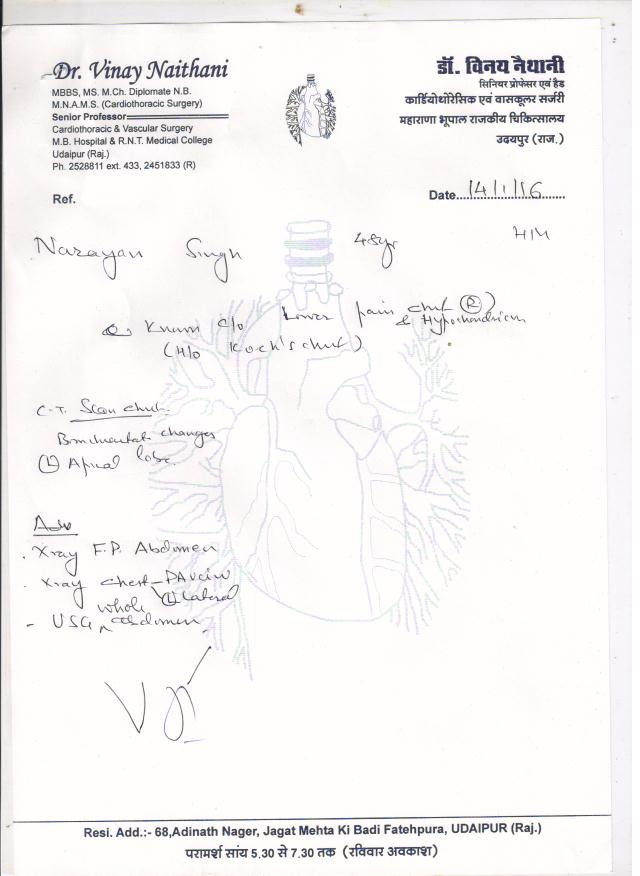 Dr. Vinay Naithani
MBBS, MS. M.Ch. Diplomate N.B.
M.N.A.M.S. (Cardiothoracic Surgery)
Senior Professor
Cardiothoracic & Vascular Surgery
M.B. Hospital & R.N.T. Medical College
Udaipur (Raj.)
Ph. 2528811 ext. 433, 2451833 (R)
डॉ. विनय नैथानी
सिनियर प्रोफेसर एवं हैड
कार्डियोथोरेसिक एवं वासकूलर सर्जरी
महाराणा भूपाल राजकीय चिकित्सालय
उदयपुर (राज.)
Ref.
Date 14/1/16
Narayan Singh 48yr H/M
c/o Lower pain chest (R)
& Hypochondrium
(H/o Koch's chest)
C.T. Scan chest
changes
(L) Apical lobe
Adv
. Xray F.P. Abdomen
. Xray chest - PA view
(L) Lateral
- USG whole abdomen
Resi. Add.:- 68,Adinath Nager, Jagat Mehta Ki Badi Fatehpura, UDAIPUR (Raj.)
परामर्श सांय 5.30 से 7.30 तक (रविवार अवकाश)